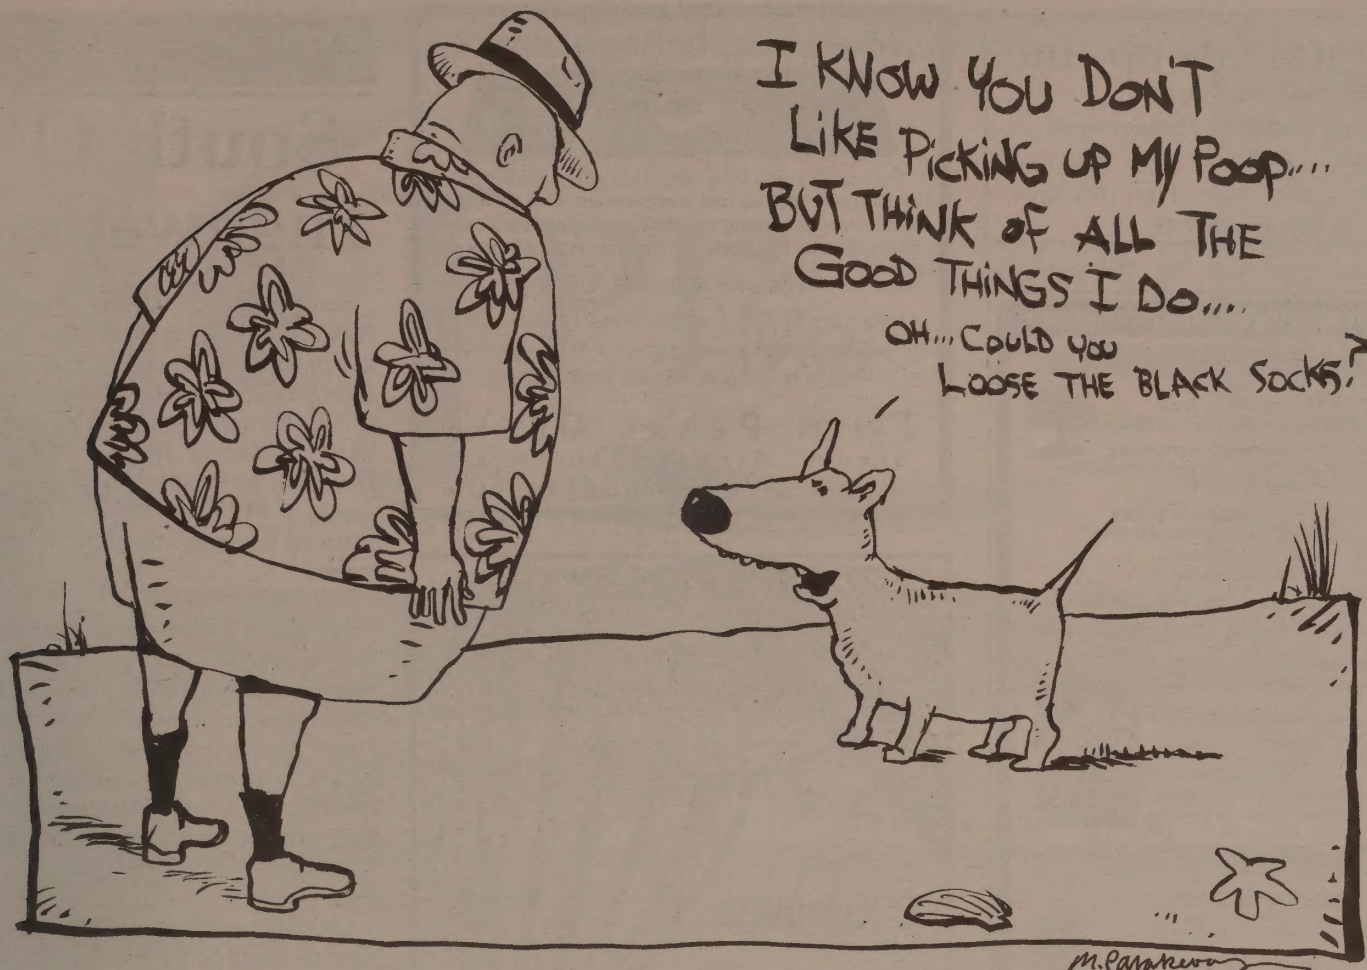 I KNOW YOU DON'T
LIKE PICKING UP MY POOP....
BUT THINK OF ALL THE
GOOD THINGS I DO....
OH... COULD YOU
LOOSE THE BLACK SOCKS?